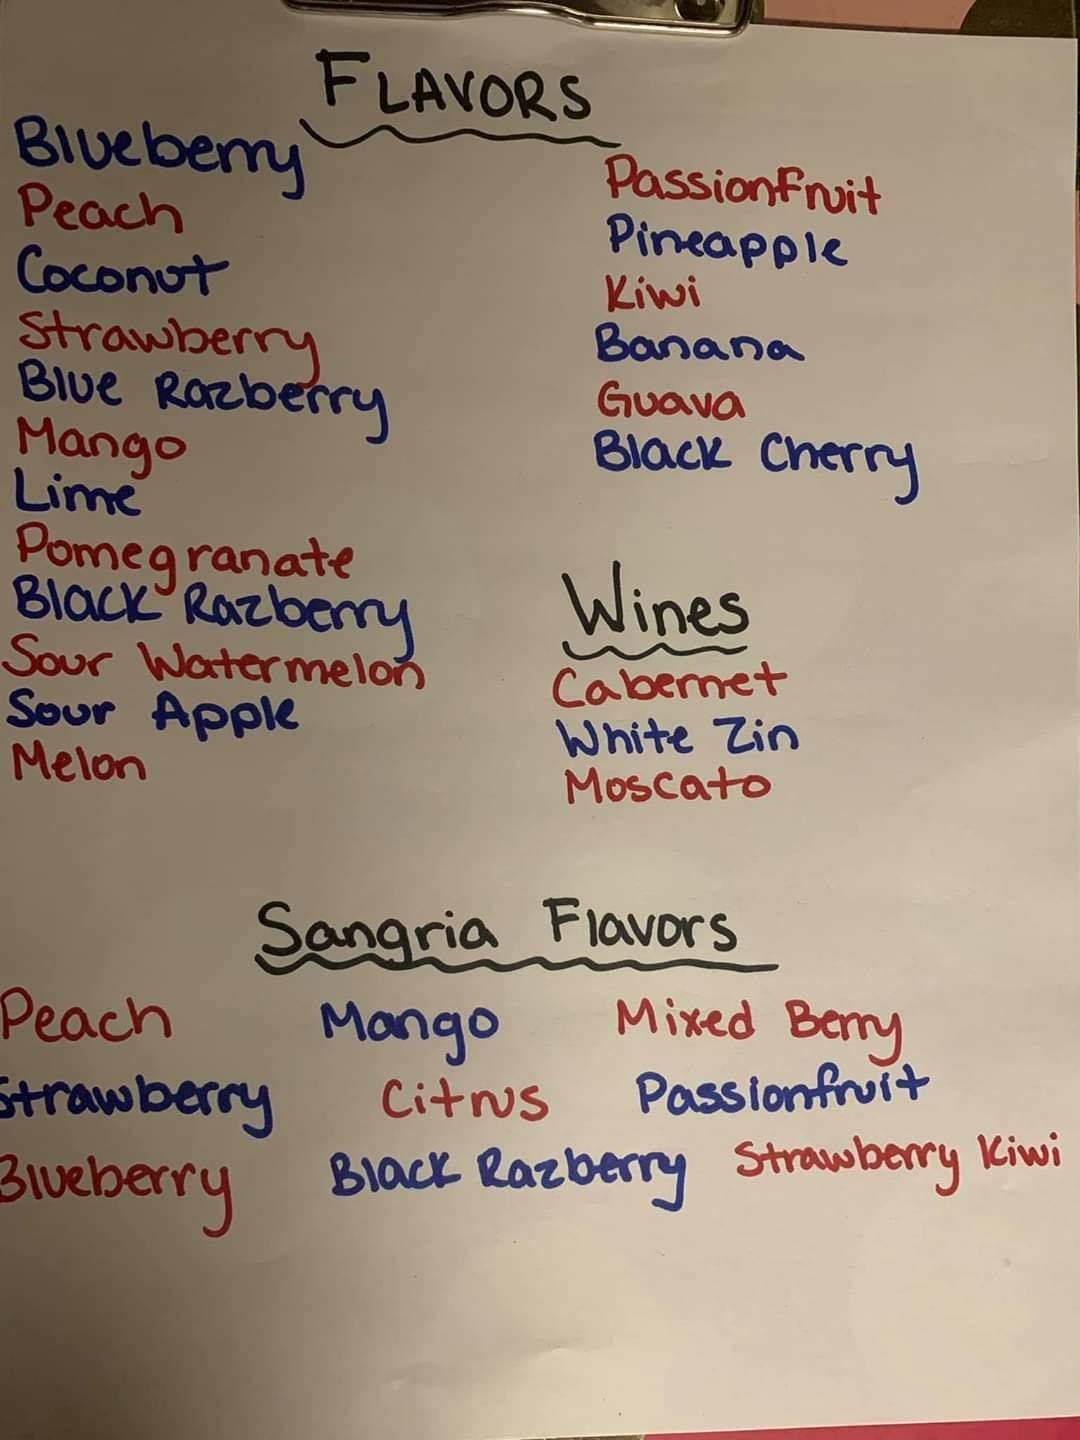 FLAVORS
Blueberry
Peach
Coconut
Strawberry
Blue Razberry
Mango
Lime
Pomegranate
Black Razberry
Sour Watermelon
Sour Apple
Melon
Passionfruit
Pineapple
Kiwi
Banana
Guava
Black Cherry
Wines
Cabernet
White Zin
Moscato
Sangria Flavors
Peach Mango Mixed Berry
Strawberry Citrus Passionfruit
Blueberry Black Razberry Strawberry Kiwi